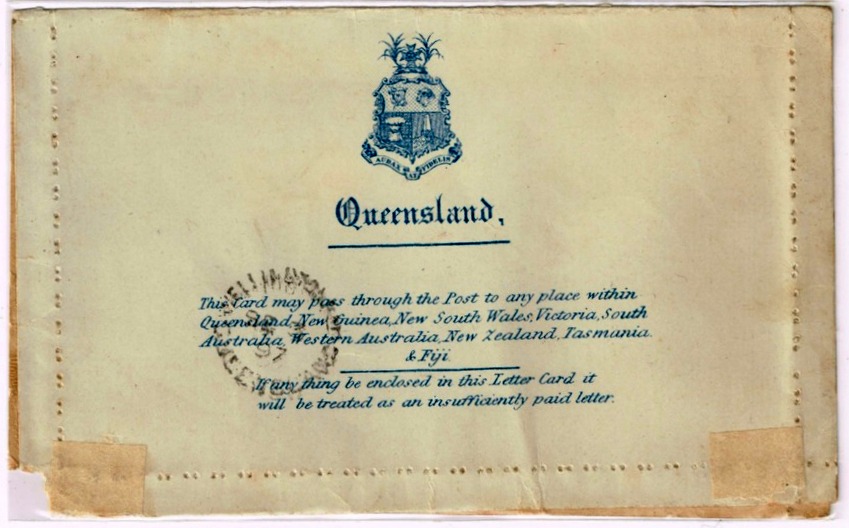 AUDAX AT FIDELIS
Queensland,
This Card may pass through the Post to any place within
Queensland, New Guinea, New South Wales, Victoria, South
Australia, Western Australia, New Zealand, Tasmania.
& Fiji
If any thing be enclosed in this Letter Card it
will be treated as an insufficiently paid letter.
WELLINGTON
97